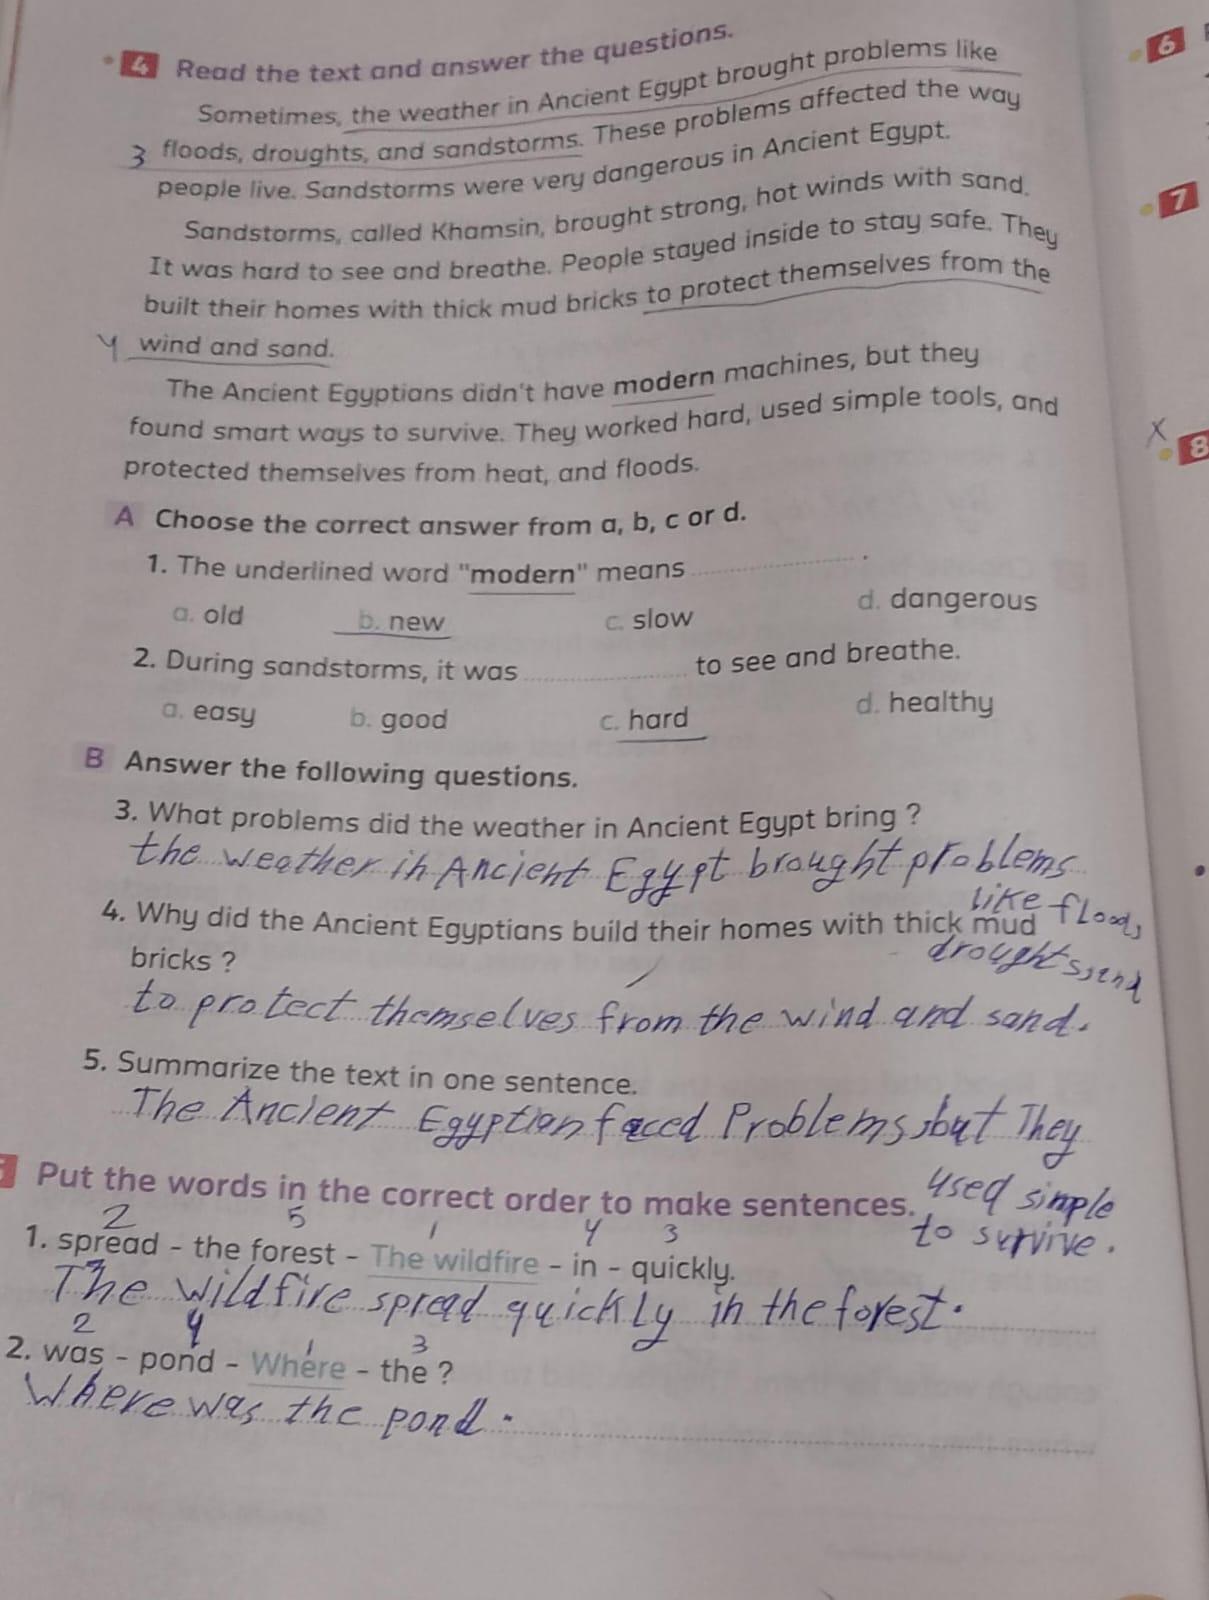 4 Read the text and answer the questions.
Sometimes, the weather in Ancient Egypt brought problems like
3 floods, droughts, and sandstorms. These problems affected the way
people live. Sandstorms were very dangerous in Ancient Egypt.
Sandstorms, called Khamsin, brought strong, hot winds with sand.
It was hard to see and breathe. People stayed inside to stay safe. They
built their homes with thick mud bricks to protect themselves from the
4 wind and sand.
The Ancient Egyptians didn't have modern machines, but they
found smart ways to survive. They worked hard, used simple tools, and
protected themselves from heat, and floods.
A Choose the correct answer from a, b, c or d.
1. The underlined word "modern" means .
a. old b. new c. slow d. dangerous
2. During sandstorms, it was to see and breathe.
a. easy b. good c. hard d. healthy
B Answer the following questions.
3. What problems did the weather in Ancient Egypt bring ?
the weather in Ancient Egypt brought problems
like flood,
4. Why did the Ancient Egyptians build their homes with thick mud
droughts,
bricks ?
to protect themselves from the wind and sand.
5. Summarize the text in one sentence.
The Ancient Egyptian faced Problems, but They
used simple
to survive.
Put the words in the correct order to make sentences.
2 5 1 4 3
1. spread - the forest - The wildfire - in - quickly.
The wildfire spread quickly in the forest.
2 4 1 3
2. was - pond - Where - the ?
Where was the pond.
6
7
X
8